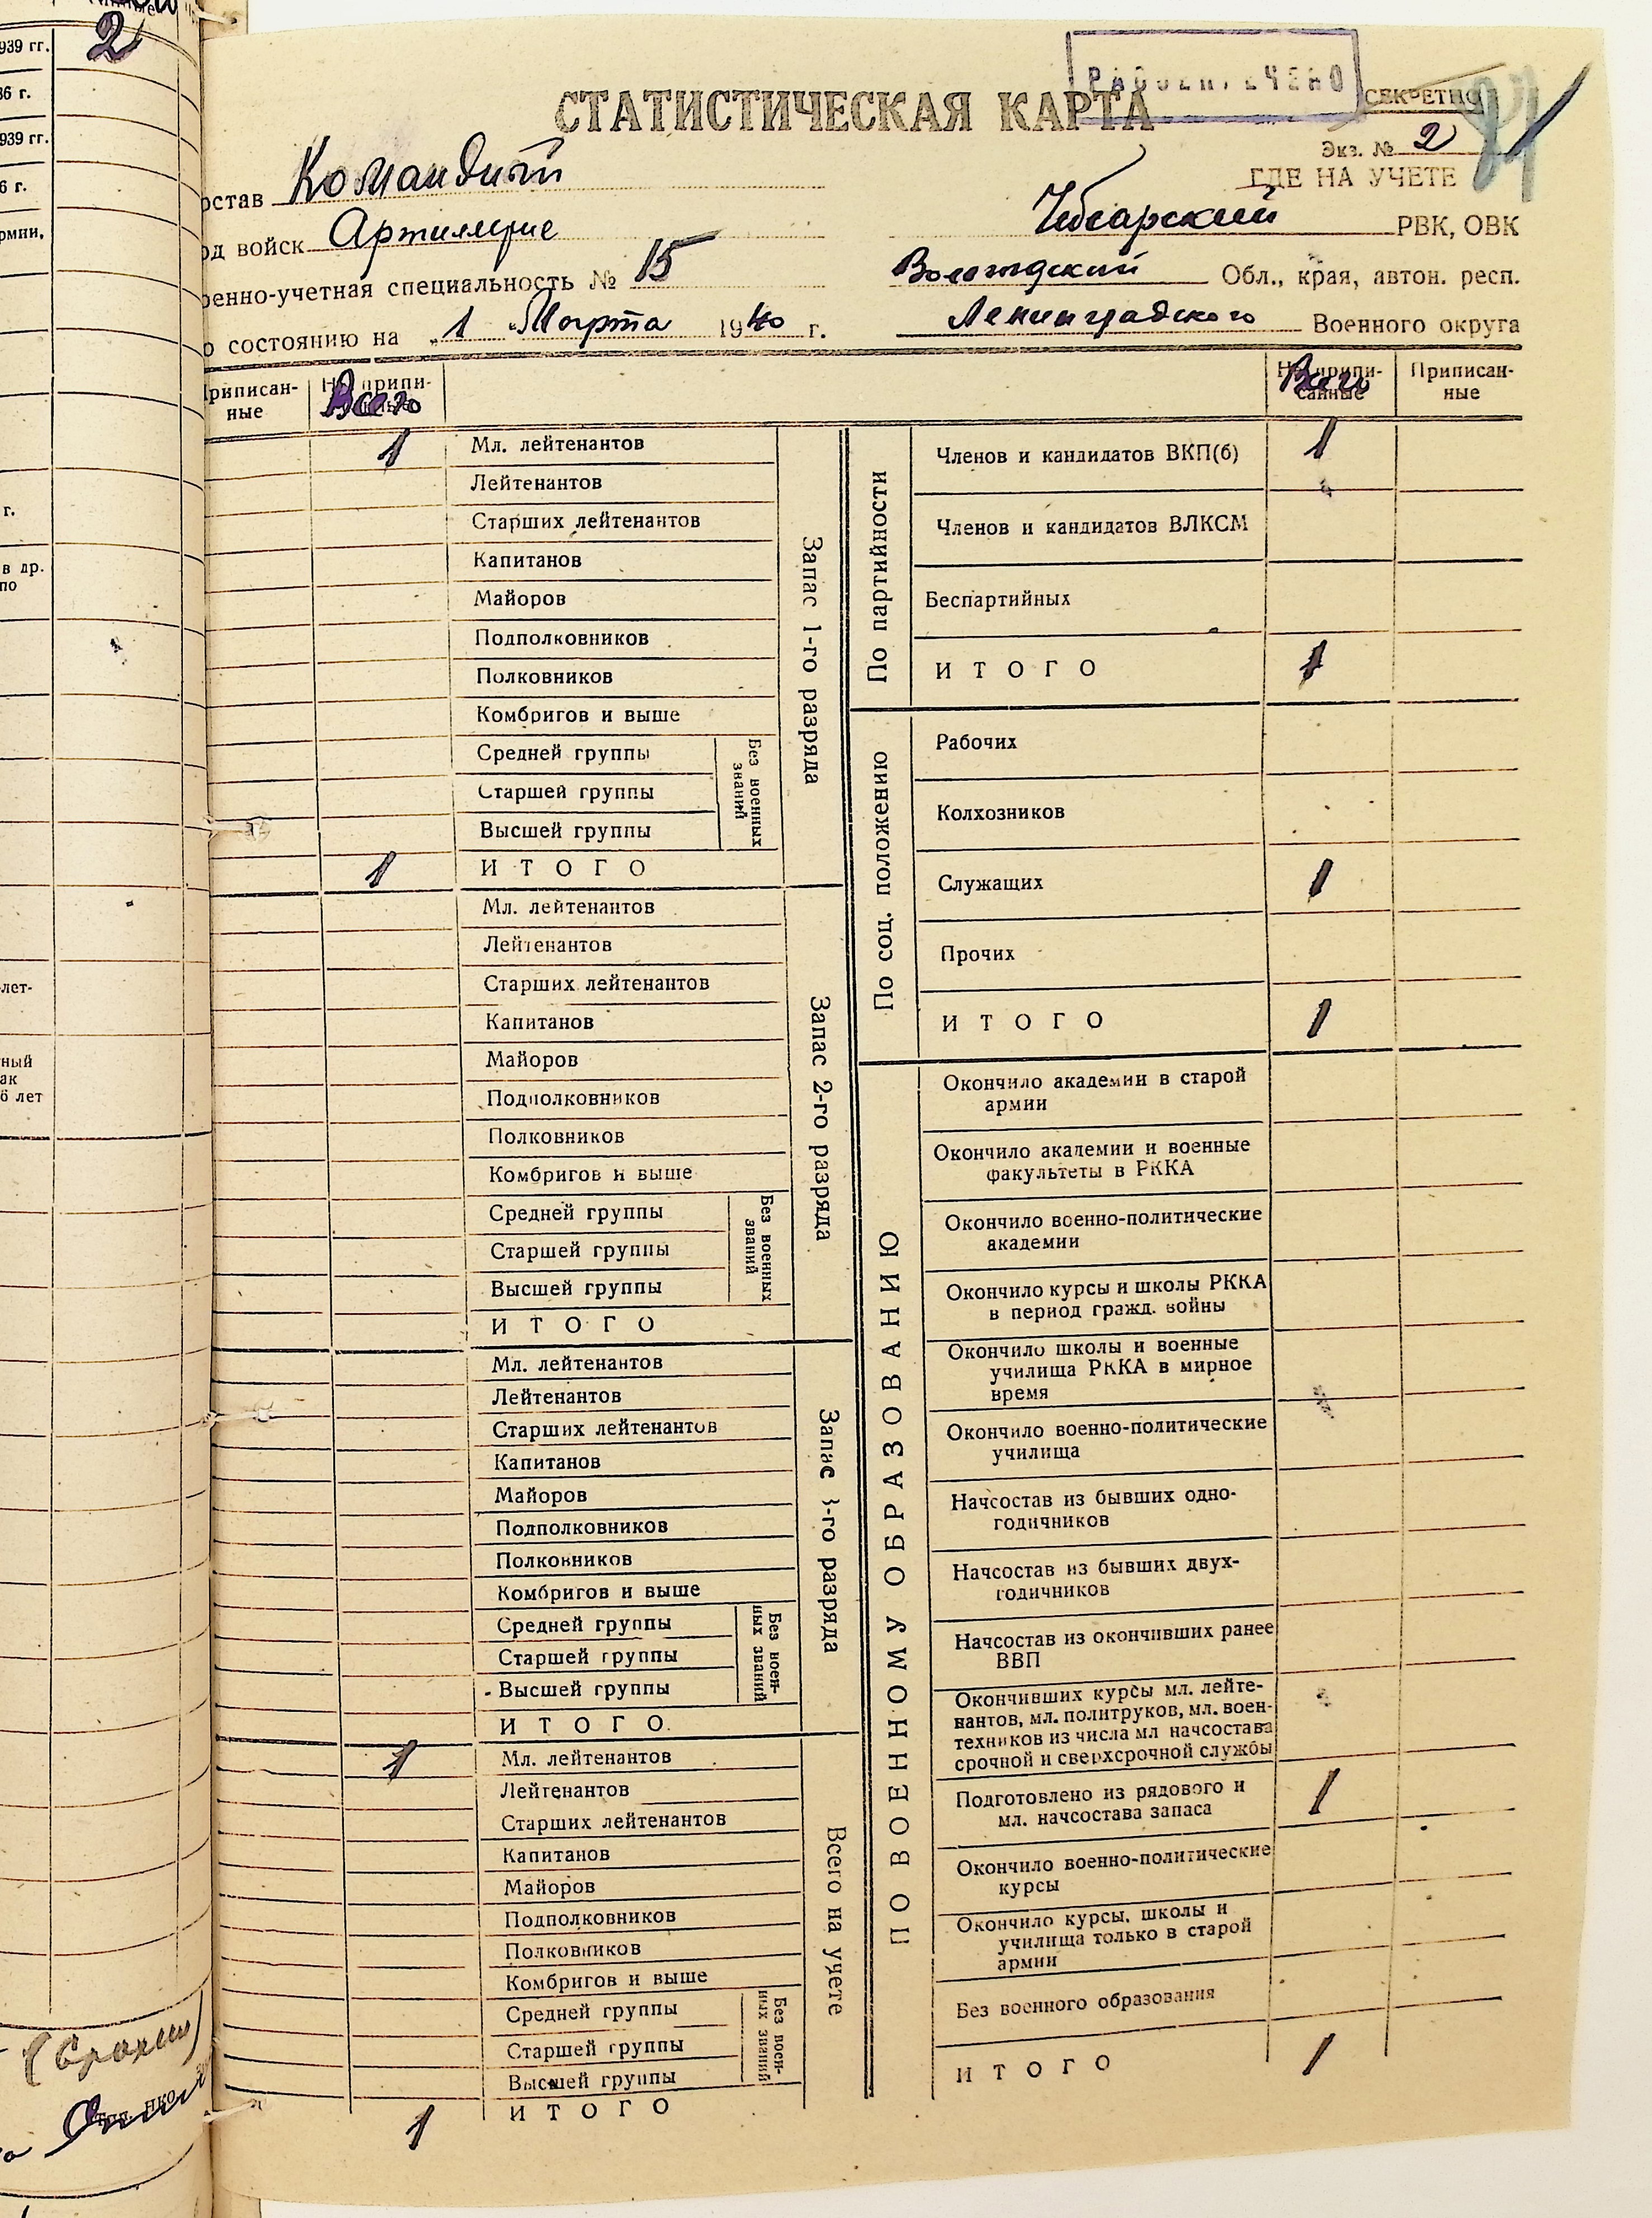 939 гг.
2
36 г.
939 гг.
6 г.
рмии,
г.
в др.
по
лет-
ный
ак
6 лет
РАССЕКРЕЧЕНО
СТАТИСТИЧЕСКАЯ КАРТА
СЕКРЕТНО
Экз. № 2
ГДЕ НА УЧЕТЕ
остав Командный
од войск Артиллерие
РВК, ОВК
оенно-учетная специальность № 15
Вологодский Обл., края, автон. респ.
о состоянию на „1 " Марта 1940 г.
Ленинградского Военного округа
риписан-
ные
Не припи-
санные
Всего
Не припи-
санные
Всего
Приписан-
ные
1
Мл. лейтенантов
Лейтенантов
Старших лейтенантов
Капитанов
Майоров
Подполковников
Полковников
Комбригов и выше
Средней группы
Старшей группы
Высшей группы
Без военных
званий
1
ИТОГО
Запас 1-го разряда
Мл. лейтенантов
Лейтенантов
Старших лейтенантов
Капитанов
Майоров
Подполковников
Полковников
Комбригов и выше
Средней группы
Старшей группы
Высшей группы
Без военных
званий
ИТОГО
Запас 2-го разряда
Мл. лейтенантов
Лейтенантов
Старших лейтенантов
Капитанов
Майоров
Подполковников
Полковников
Комбригов и выше
Средней группы
Старшей группы
Высшей группы
Без воен-
ных званий
ИТОГО
Запас 3-го разряда
1
Мл. лейтенантов
Лейтенантов
Старших лейтенантов
Капитанов
Майоров
Подполковников
Полковников
Комбригов и выше
Средней группы
Старшей группы
Высшей группы
Без воен-
ных званий
1
ИТОГО
Всего на учете
По партийности
Членов и кандидатов ВКП(б)
1
Членов и кандидатов ВЛКСМ
Беспартийных
ИТОГО
1
По соц. положению
Рабочих
Колхозников
Служащих
1
Прочих
ИТОГО
1
ПО ВОЕННОМУ ОБРАЗОВАНИЮ
Окончило академии в старой
армии
Окончило академии и военные
факультеты в РККА
Окончило военно-политические
академии
Окончило курсы и школы РККА
в период гражд. войны
Окончило школы и военные
училища РККА в мирное
время
Окончило военно-политические
училища
Начсостав из бывших одно-
годичников
Начсостав из бывших двух-
годичников
Начсостав из окончивших ранее
ВВП
Окончивших курсы мл. лейте-
нантов, мл. политруков, мл. воен-
техников из числа мл начсостава
срочной и сверхсрочной службы
Подготовлено из рядового и
мл. начсостава запаса
1
Окончило военно-политические
курсы
Окончило курсы, школы и
училища только в старой
армии
Без военного образования
ИТОГО
1